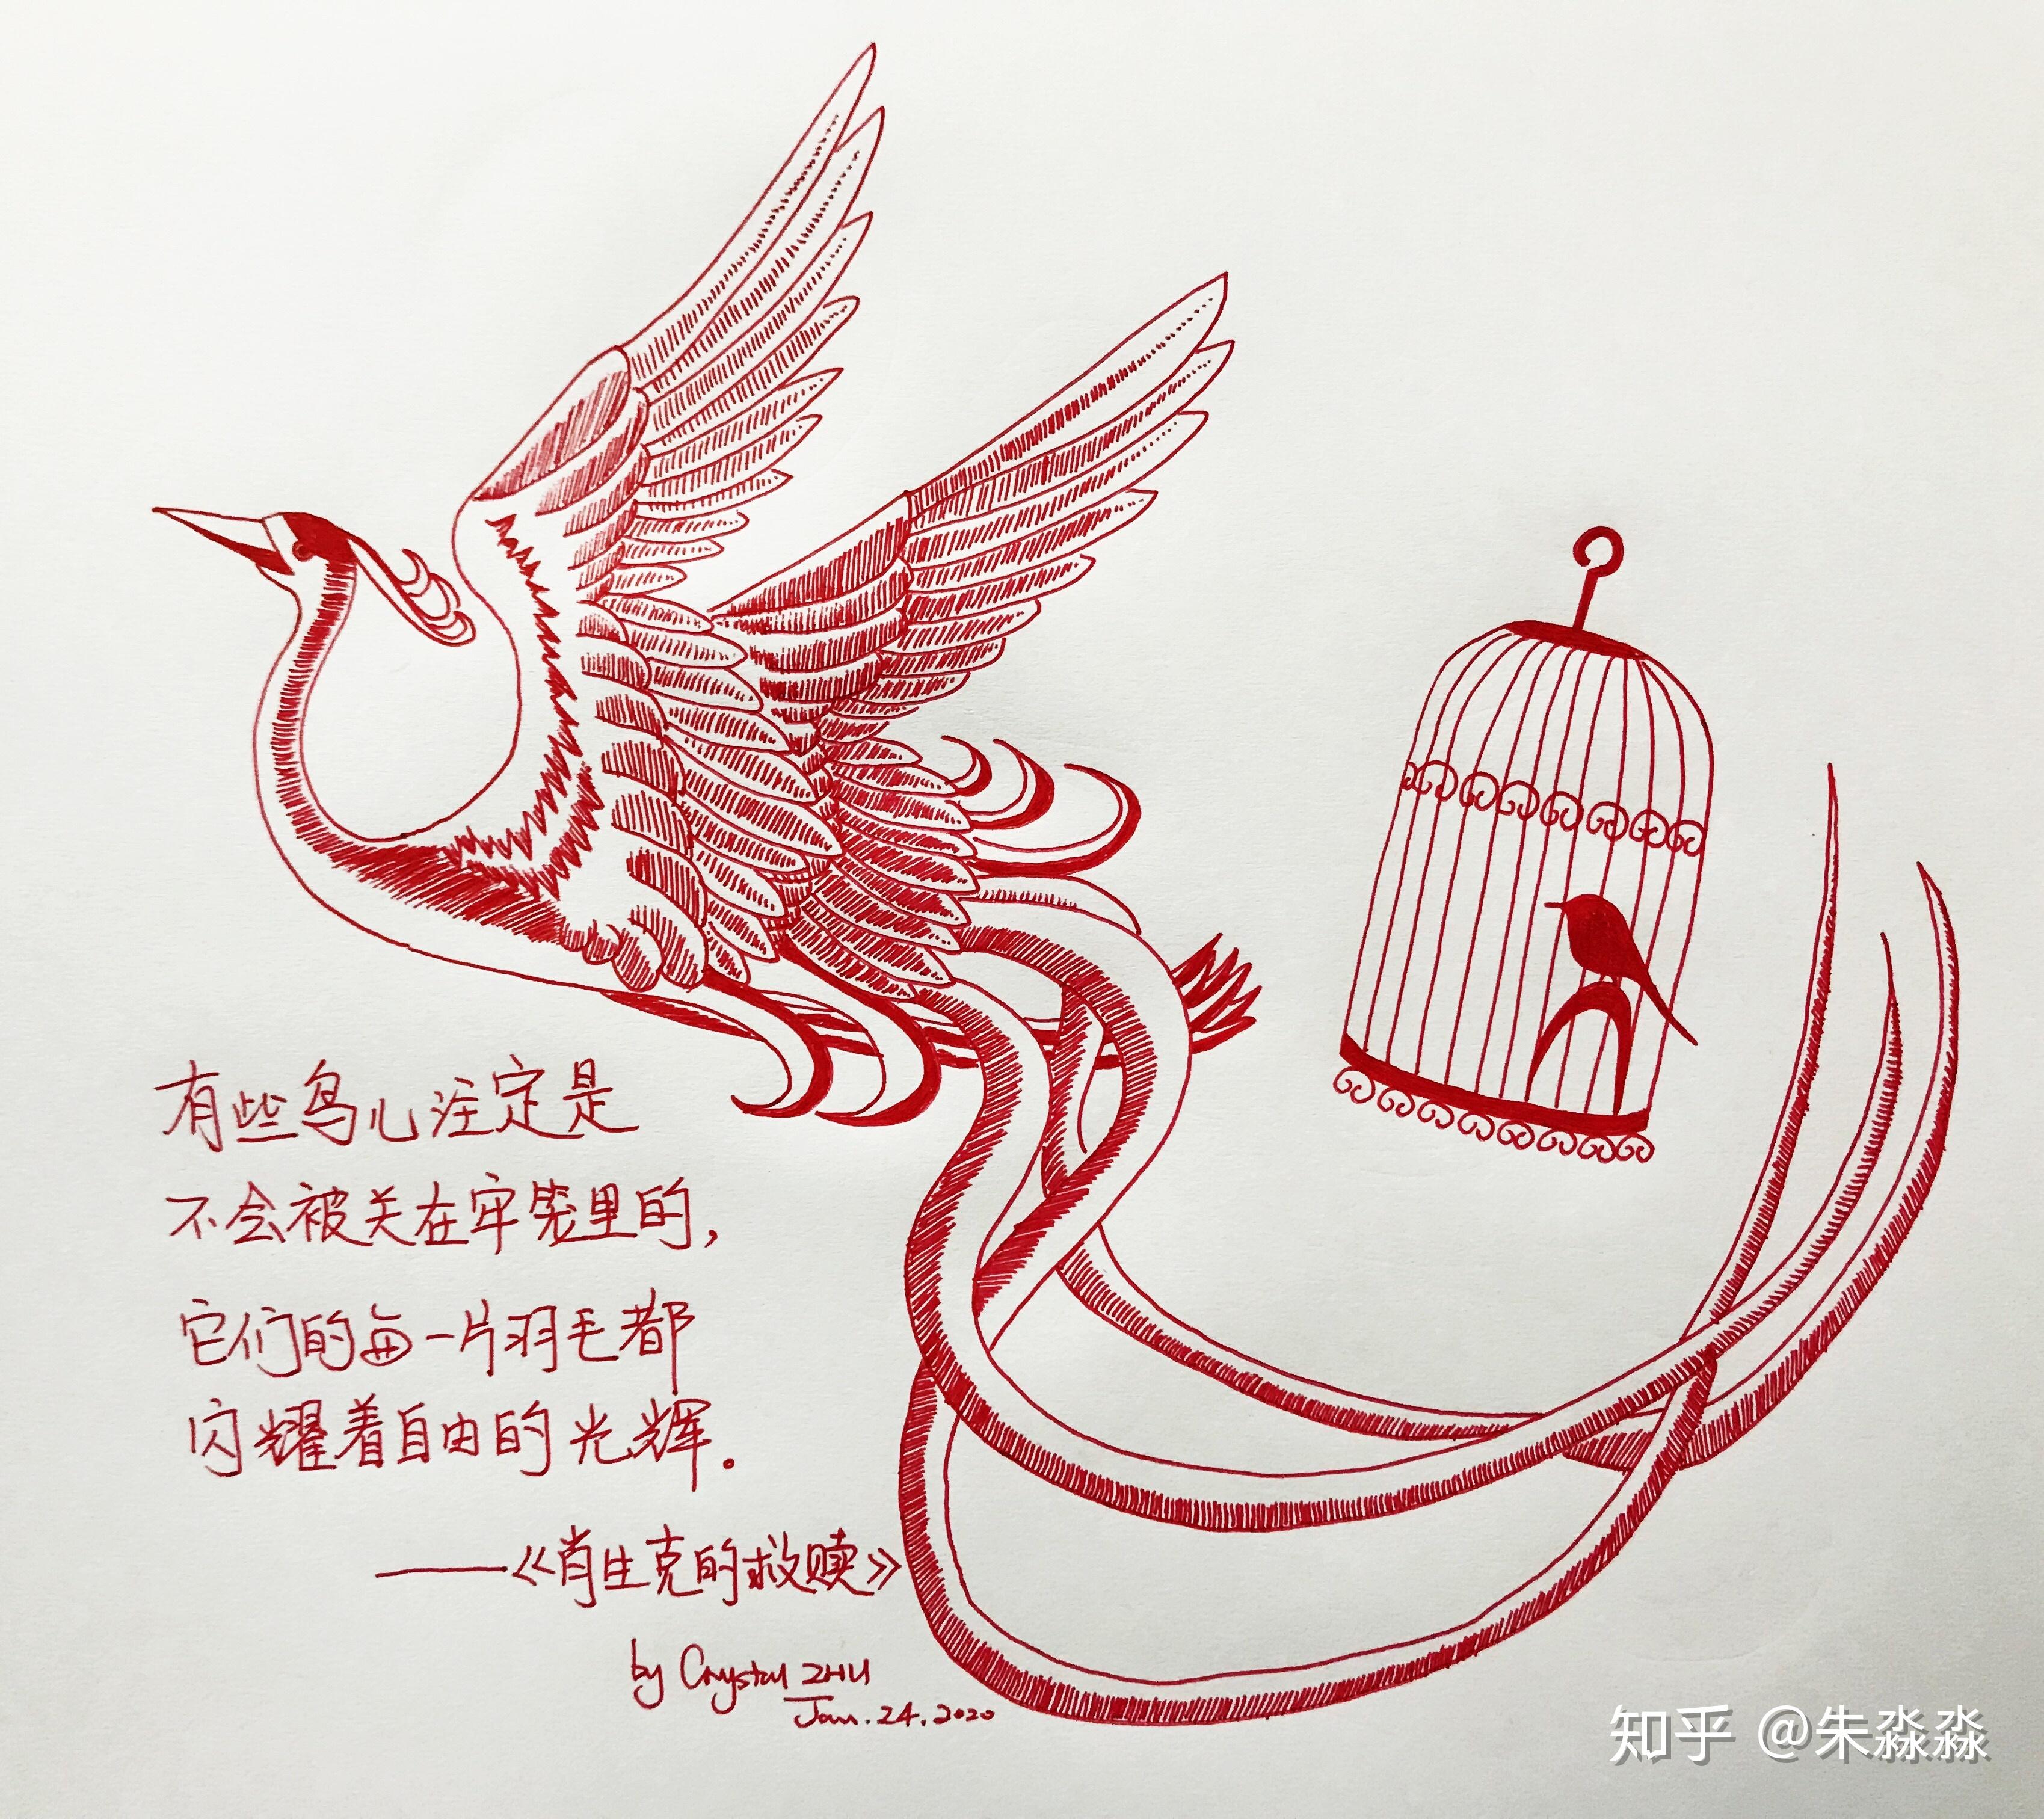 有些鸟儿注定是
不会被关在牢笼里的，
它们的每一片羽毛都
闪耀着自由的光辉。
——《肖生克的救赎》
by Crystal ZHU
Jan.24.2020
知乎 @朱淼淼